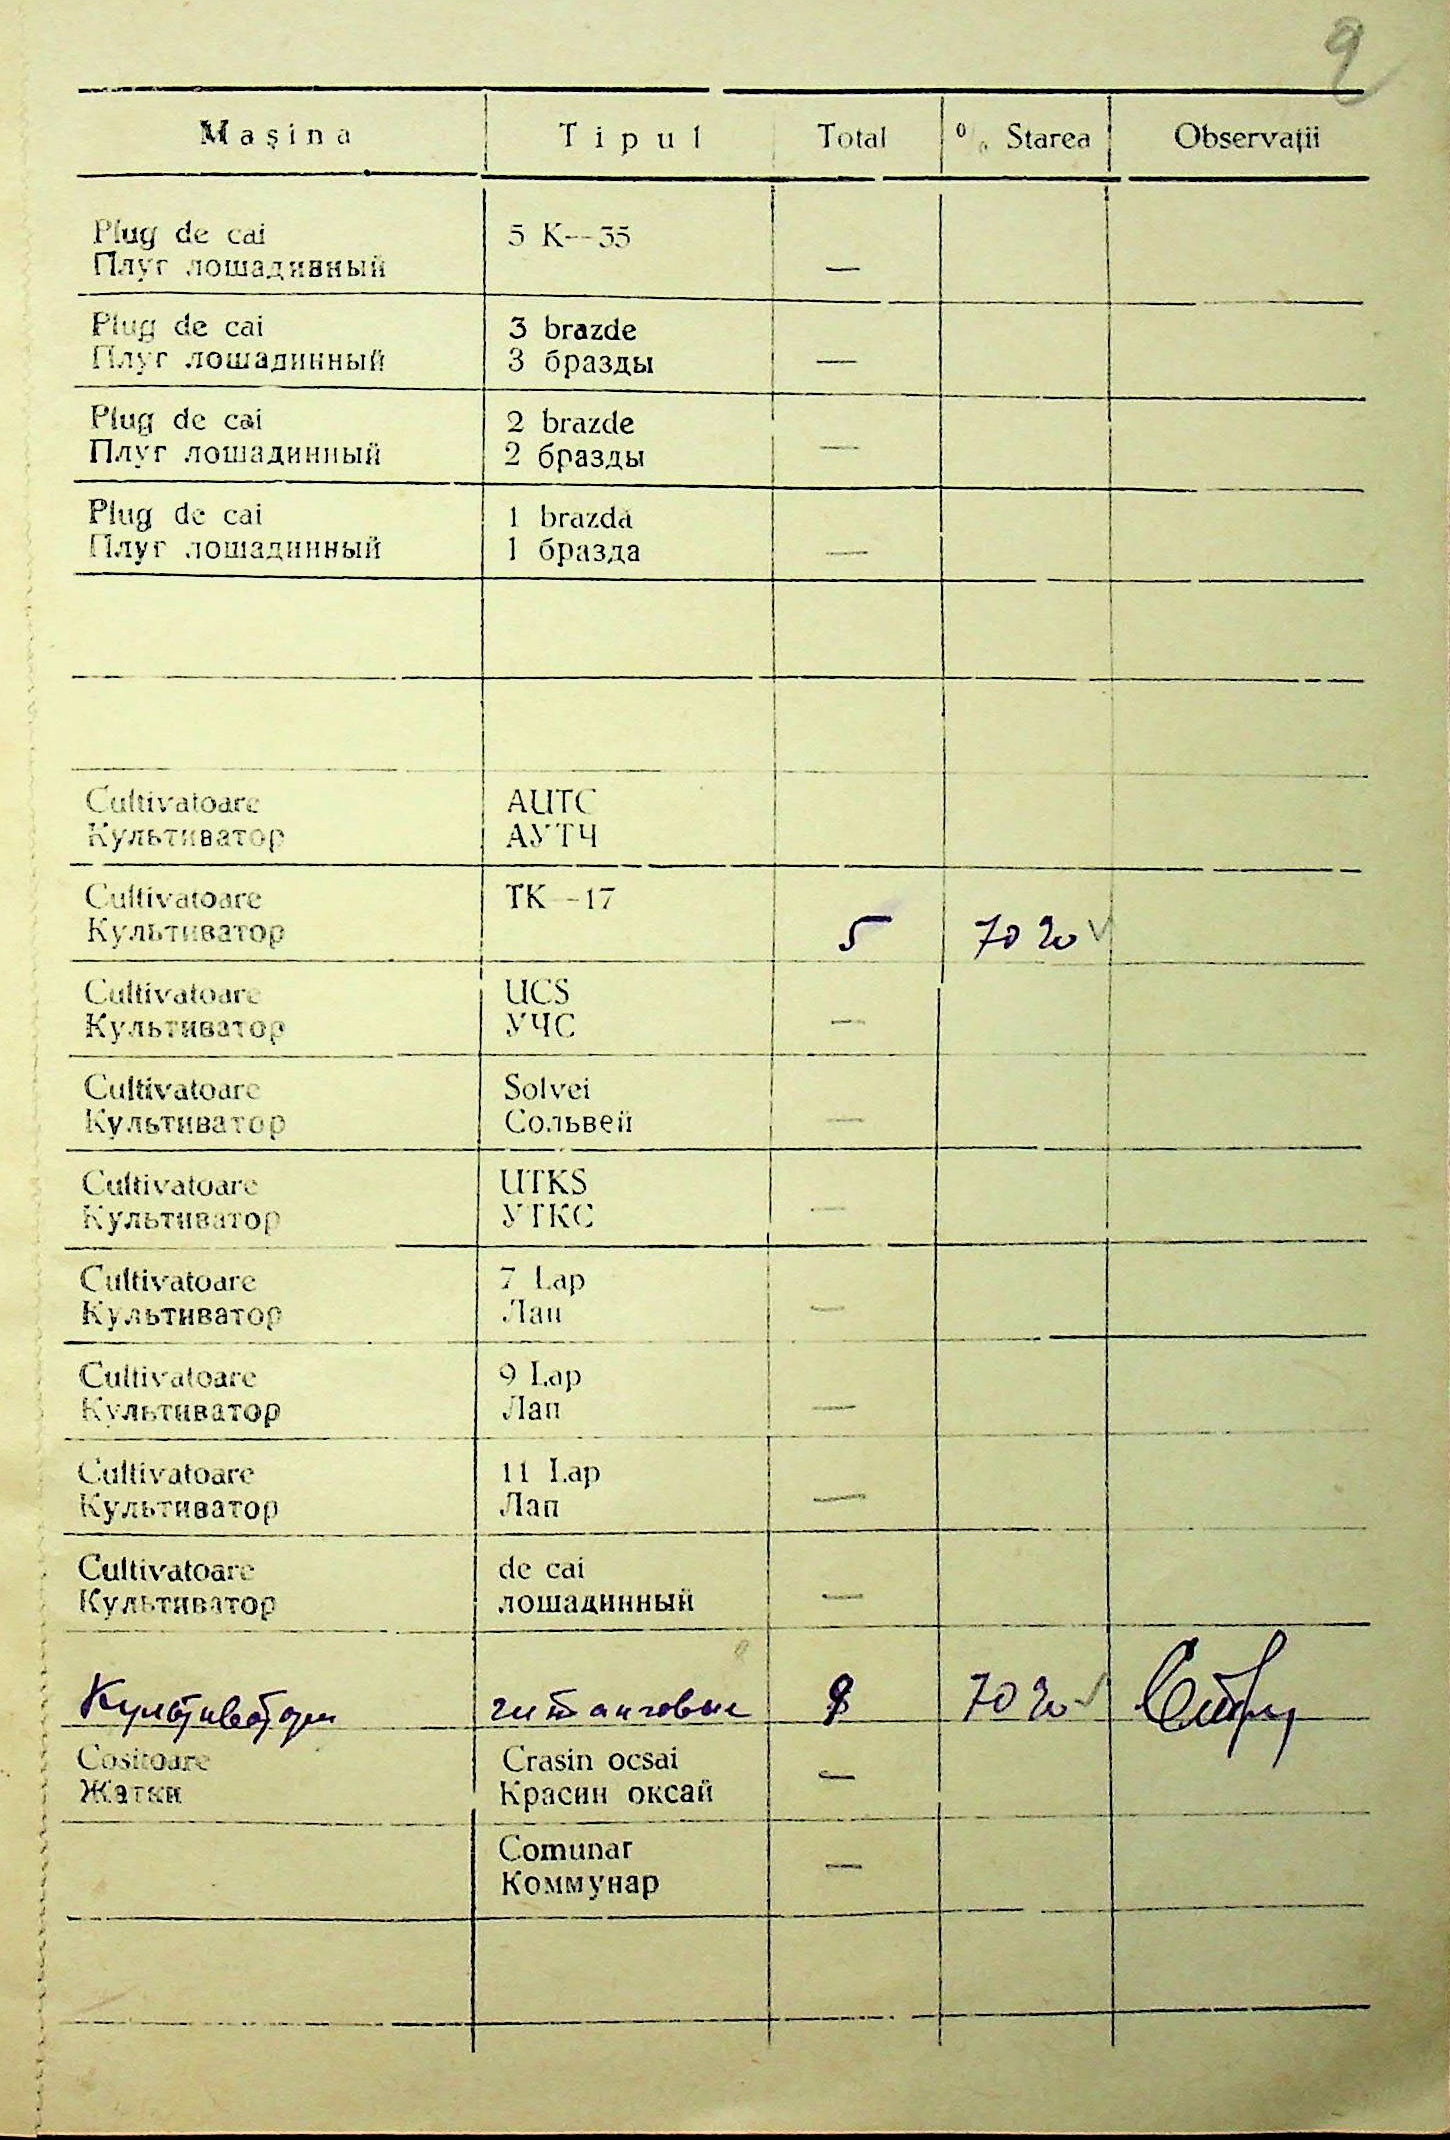 9
Mașina Tipul Total % Starea Observații
Plug de cai 5 K—35
Плуг лошадивный —
Plug de cai 3 brazde
Плуг лошадинный 3 бразды —
Plug de cai 2 brazde
Плуг лошадинный 2 бразды —
Plug de cai 1 brazdă
Плуг лошадинный 1 бразда —
Cultivatoare AUTC
Культиватор АУТЧ
Cultivatoare TK—17
Культиватор 5 70 % ✓
Cultivatoare UCS
Культиватор УЧС —
Cultivatoare Solvei
Культиватор Сольвей —
Cultivatoare UTKS
Культиватор УТКС —
Cultivatoare 7 Lap
Культиватор Лап —
Cultivatoare 9 Lap
Культиватор Лап —
Cultivatoare 11 Lap
Культиватор Лап —
Cultivatoare de cai
Культиватор лошадинный —
Культиваторы 8 70 % ✓
Cositoare Crasin ocsai
Жатки Красин оксай —
Comunar
Коммунар —